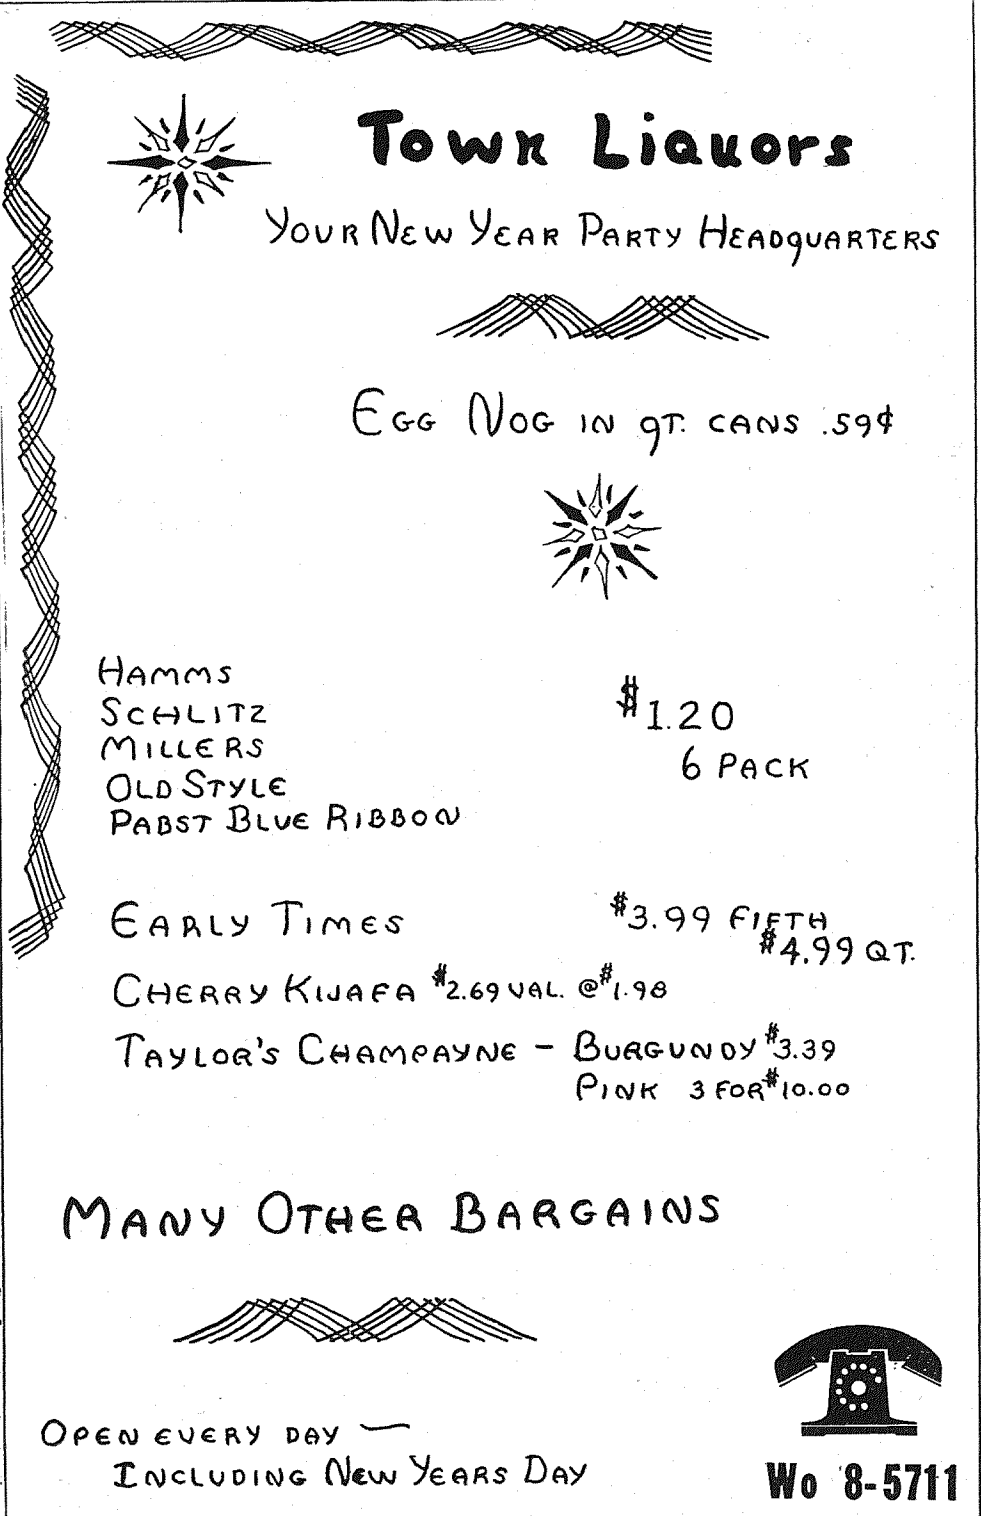 Town Liquors
Your New Year Party Headquarters
Egg Nog in qt. cans .59¢
Hamms
Schlitz
Millers
Old Style
Pabst Blue Ribbon
$1.20
6 Pack
Early Times $3.99 Fifth
$4.99 Qt.
Cherry Kijafa $2.69 Val. @ $1.98
Taylor's Champayne - Burgundy $3.39
Pink 3 for $10.00
Many Other Bargains
Open every day —
Including New Years Day
Wo 8-5711